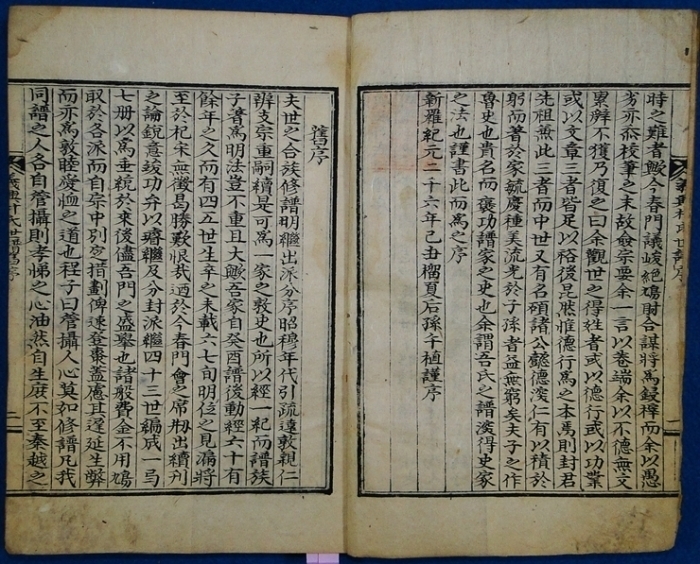 時之難者歟今春門議峻絶鳩財合謀將爲鋟梓而余以愚
劣亦忝校筆之末故僉宗要余一言以卷端余以不德無文
累辭不獲乃復之曰余觀世之得姓者或以德行或以功業
或以文章三者皆足以裕後昆然惟德行爲之本焉則封君
先祖兼此三者而中世又有名碩諸公懿德深仁有以積於
躬而著於家毓慶種美流光於子孫者益無窮矣夫子之作
魯史也貴名而褒功譜家之史也余謂吾氏之譜深得史家
之法也謹書此而爲之序
新羅紀元二十六年己丑榴夏后孫午植謹序
舊序
夫世之合族修譜明繼出派分序昭穆年代引疏遠敦親仁
辨支宗重嗣續是可爲一家之敦史也所以經一紀而譜族
子著爲明法豈不重且大歟吾家自癸酉譜後動經六十有
餘年之久而有四五世生卒之未載六七旬明俊之見漏將
至於杞宋無徵曷勝歎恨哉迺於今春門會之席刱出續刋
之論銳意竣功弁以璿繼及分封派繼四十三世編成一弓
七册以爲垂統於來後儘吾門之盛擧也諸般費金不用鳩
取於各派而自宗中別措劃俾速登棗蓋慮其遲延生弊
而亦爲敦睦愛恤之道也程子曰管攝人心莫如修譜凡我
同譜之人各自管攝則孝悌之心油然自生庶不至秦越之